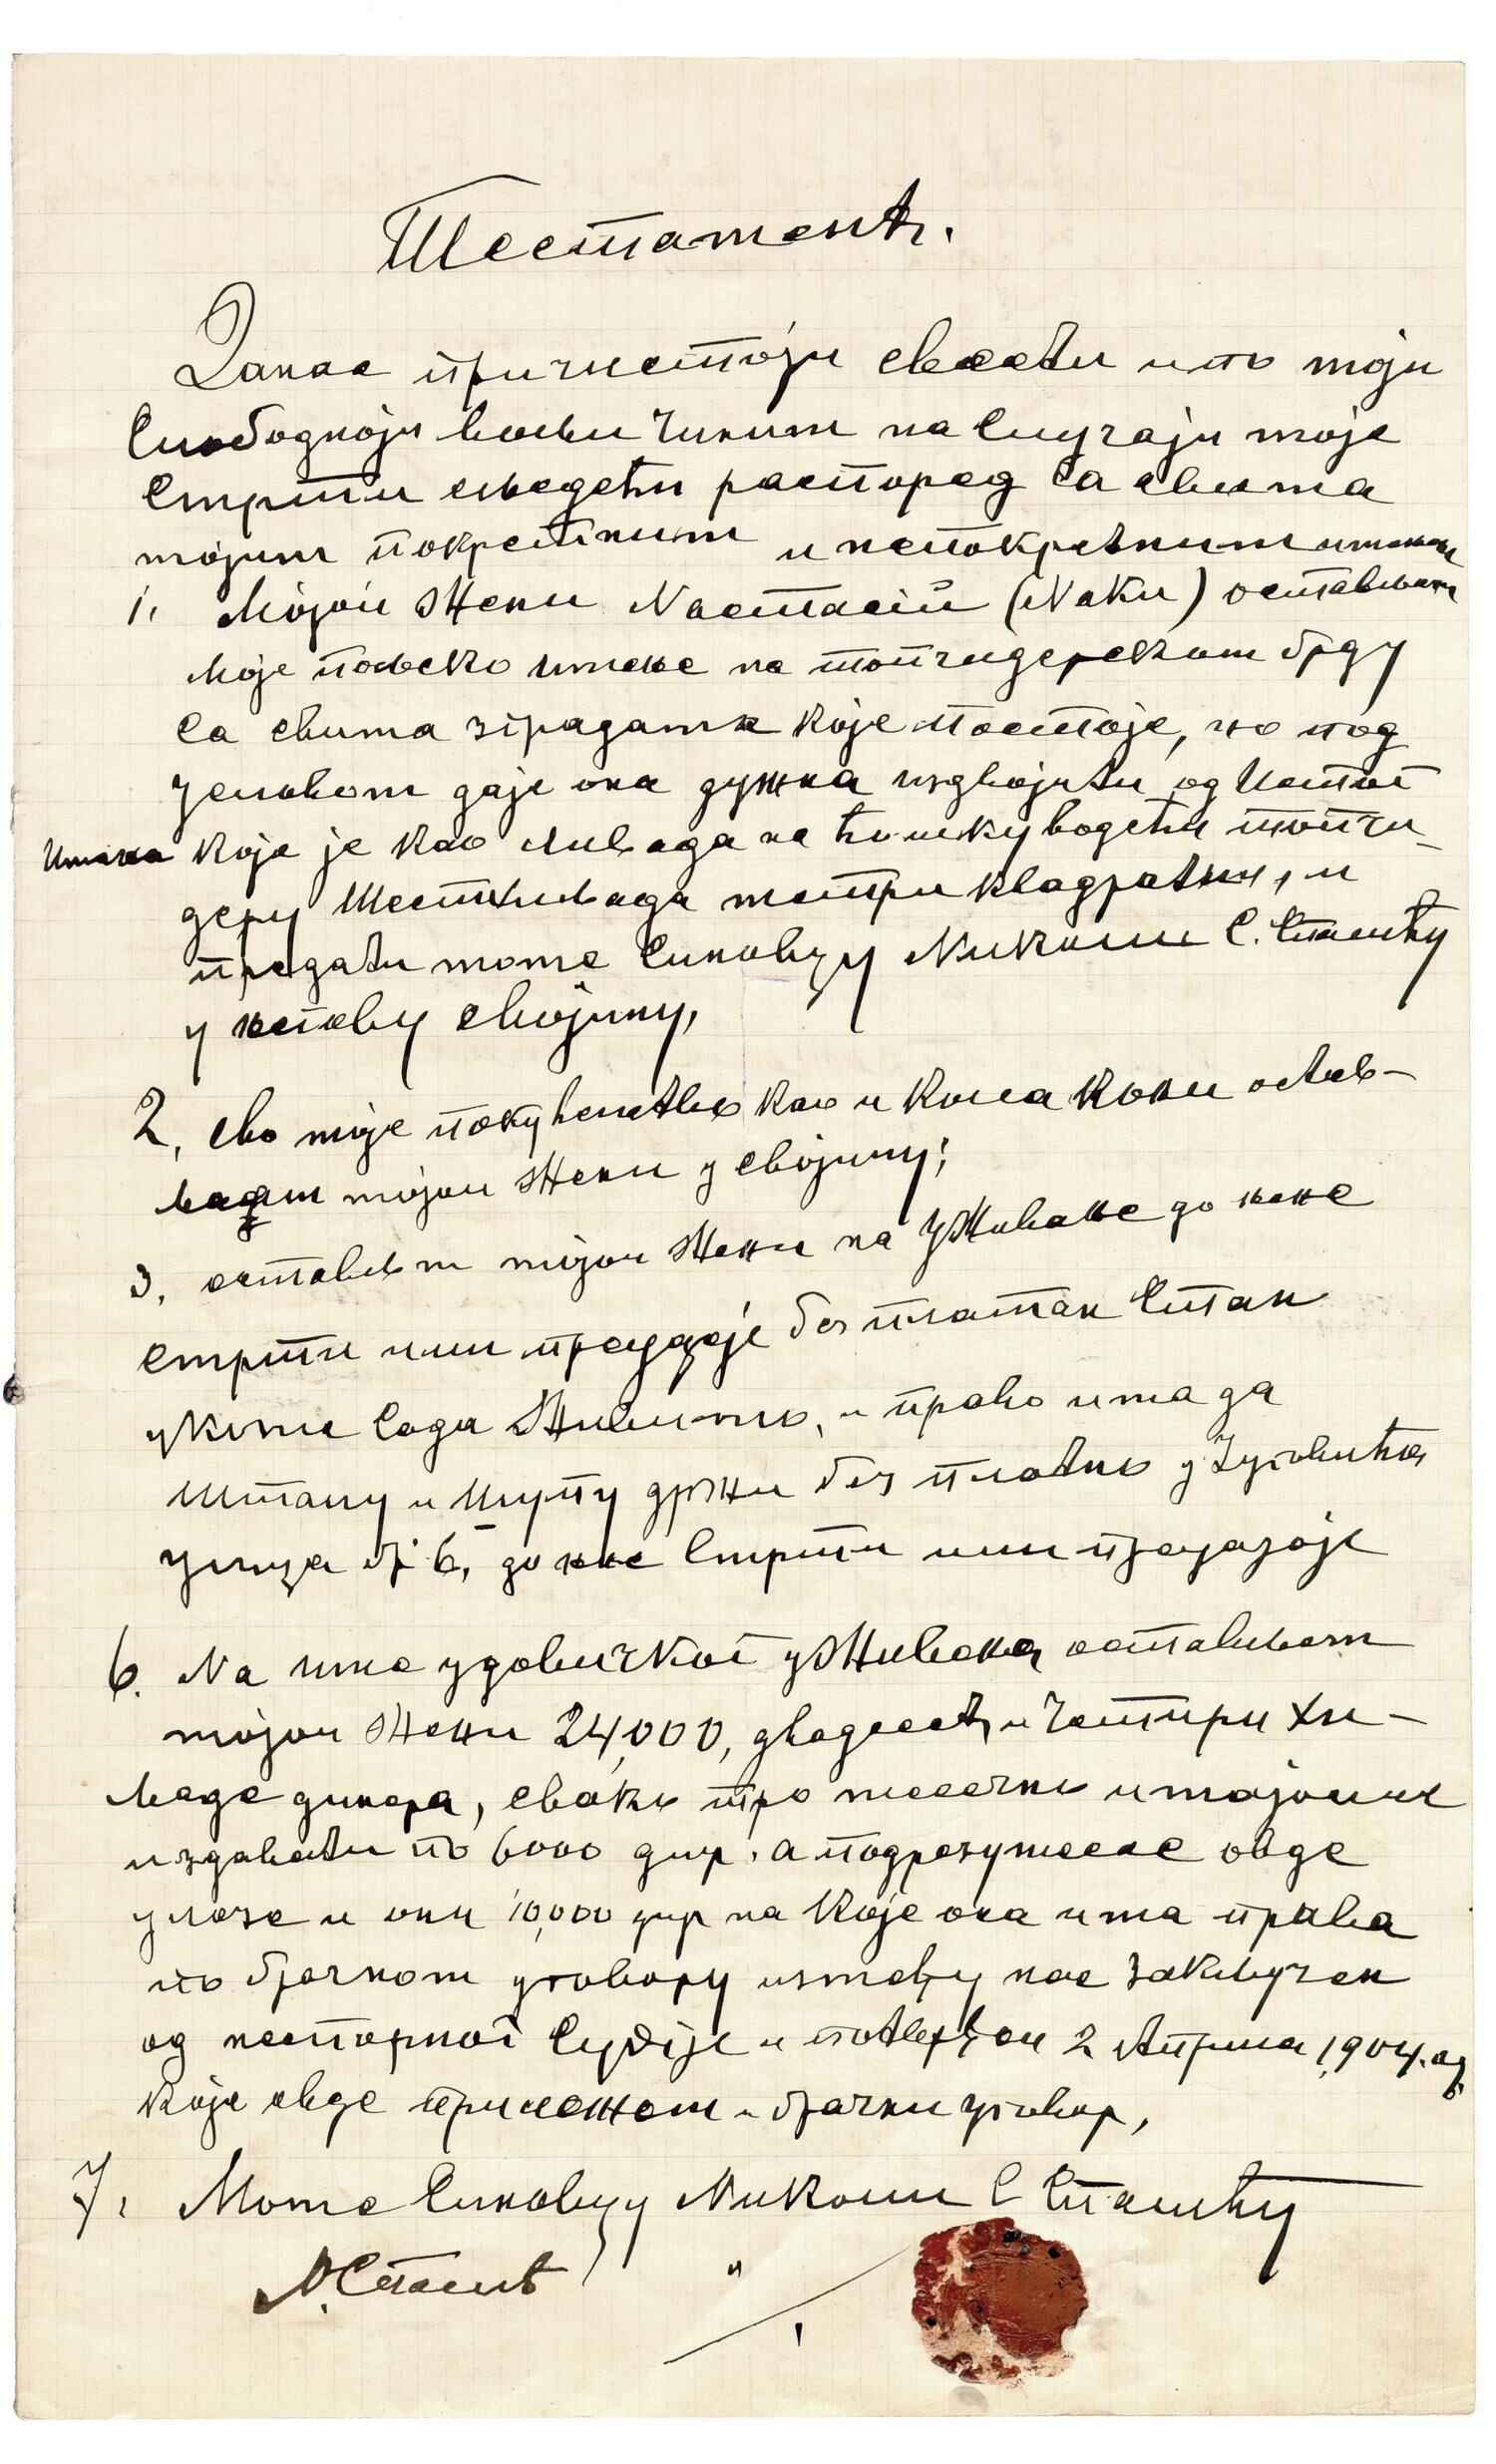 Тестамент.
Данас при чистој свести и по мојој
слободној вољи чиним на случају моје
смрти следећи распоред са свима
мојим покретним и непокретним имањем
1, Мојој жени Настасији (Наки) остављам
моје пољско имање на топчидерском брду
са свима зградама које постоје, но под
условом да је она дужна издвојити од истог
имања које је као ливада на ћошку водећи топчи-
деру шест хиљада метри квадратни, и
предати моме синовцу Николи С. Спасићу
у његову својину,
2, сво моје покућенство као и кола коњи остав-
љам мојој жени у својину;
3, остављам мојој жени на уживање до њене
смрти или преудаје бесплатан стан
у коме сада живимо, и право има да
шталу и шупу држи бесплатно у
улица бр 6, до њне смрти или преудаје
6. На име удовичког уживања остављам
мојој жени 24,000, двадесет и четири хи-
љаде динара, свако тро месечно има јој се
издавати по 6000 дин. а подразумева се овде
улазе и они 10,000 дир на које она има права
по брачном уговору између нас закључен
од неспорног судије и потврђен 2 Априла 1904. год.
које овде прилежем и брачни уговор,
7, Моме синовцу Николи С Спасићу
Н. Спасић